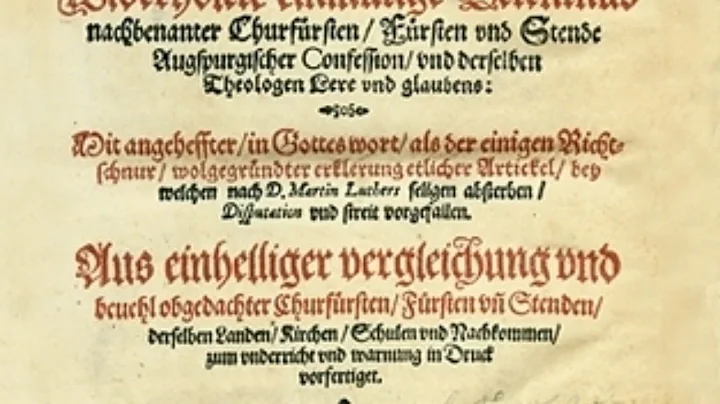 nachbenanter Churfürsten/ Fürsten vnd Stende
Augspurgischer Confession/ vnd derselben
Theologen Lere vnd glaubens:
Mit angeheffter/ in Gottes wort/ als der einigen Richt-
schnur/ wolgegründter erklerung etlicher Artickel/ bey
welchen nach D. Martin Luthers seligen absterben/
Disputation vnd streit vorgefallen.
Aus einhelliger vergleichung vnd
beuehl obgedachter Churfürsten/ Fürsten vn̄ Stenden/
derselben Landen/ Kirchen/ Schulen vnd Nachkommen/
zum vnderricht vnd warnung in Druck
vorfertiget.